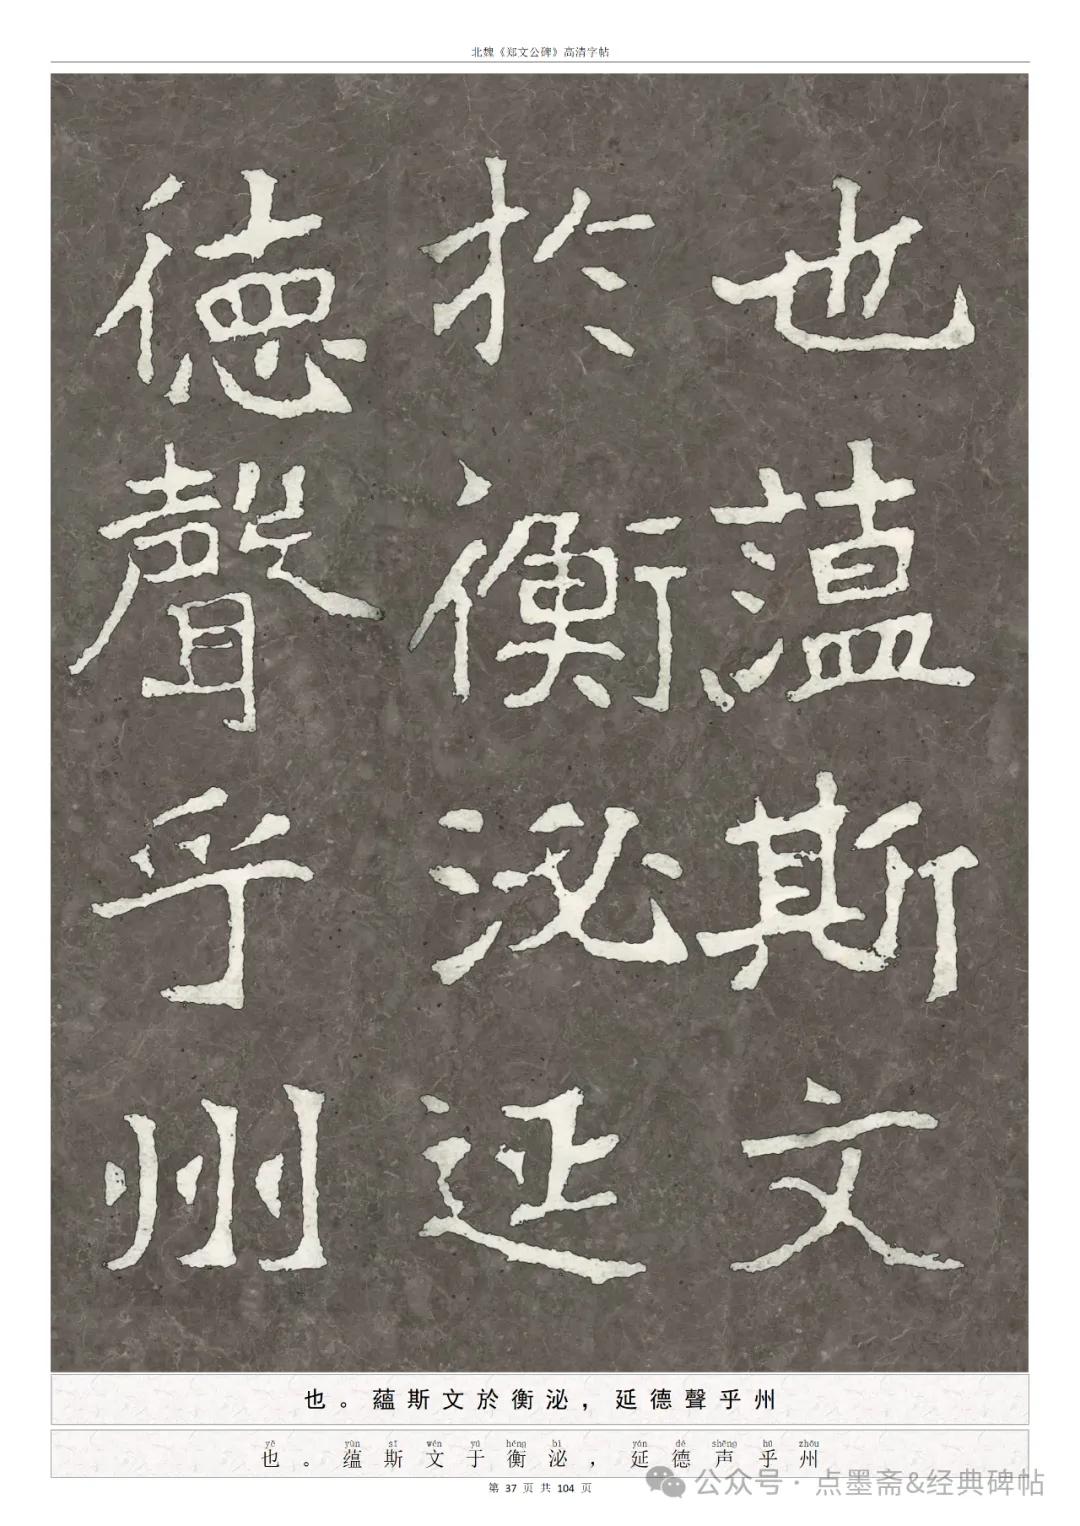 北魏《郑文公碑》高清字帖
也蕰斯文
於衡泌延
德聲乎州
也。蘊斯文於衡泌，延德聲乎州
yě yùn sī wén yú héng bì yán dé shēng hū zhōu
也。蕴斯文于衡泌，延德声乎州
第 37 页 共 104 页
公众号·点墨斋&经典碑帖